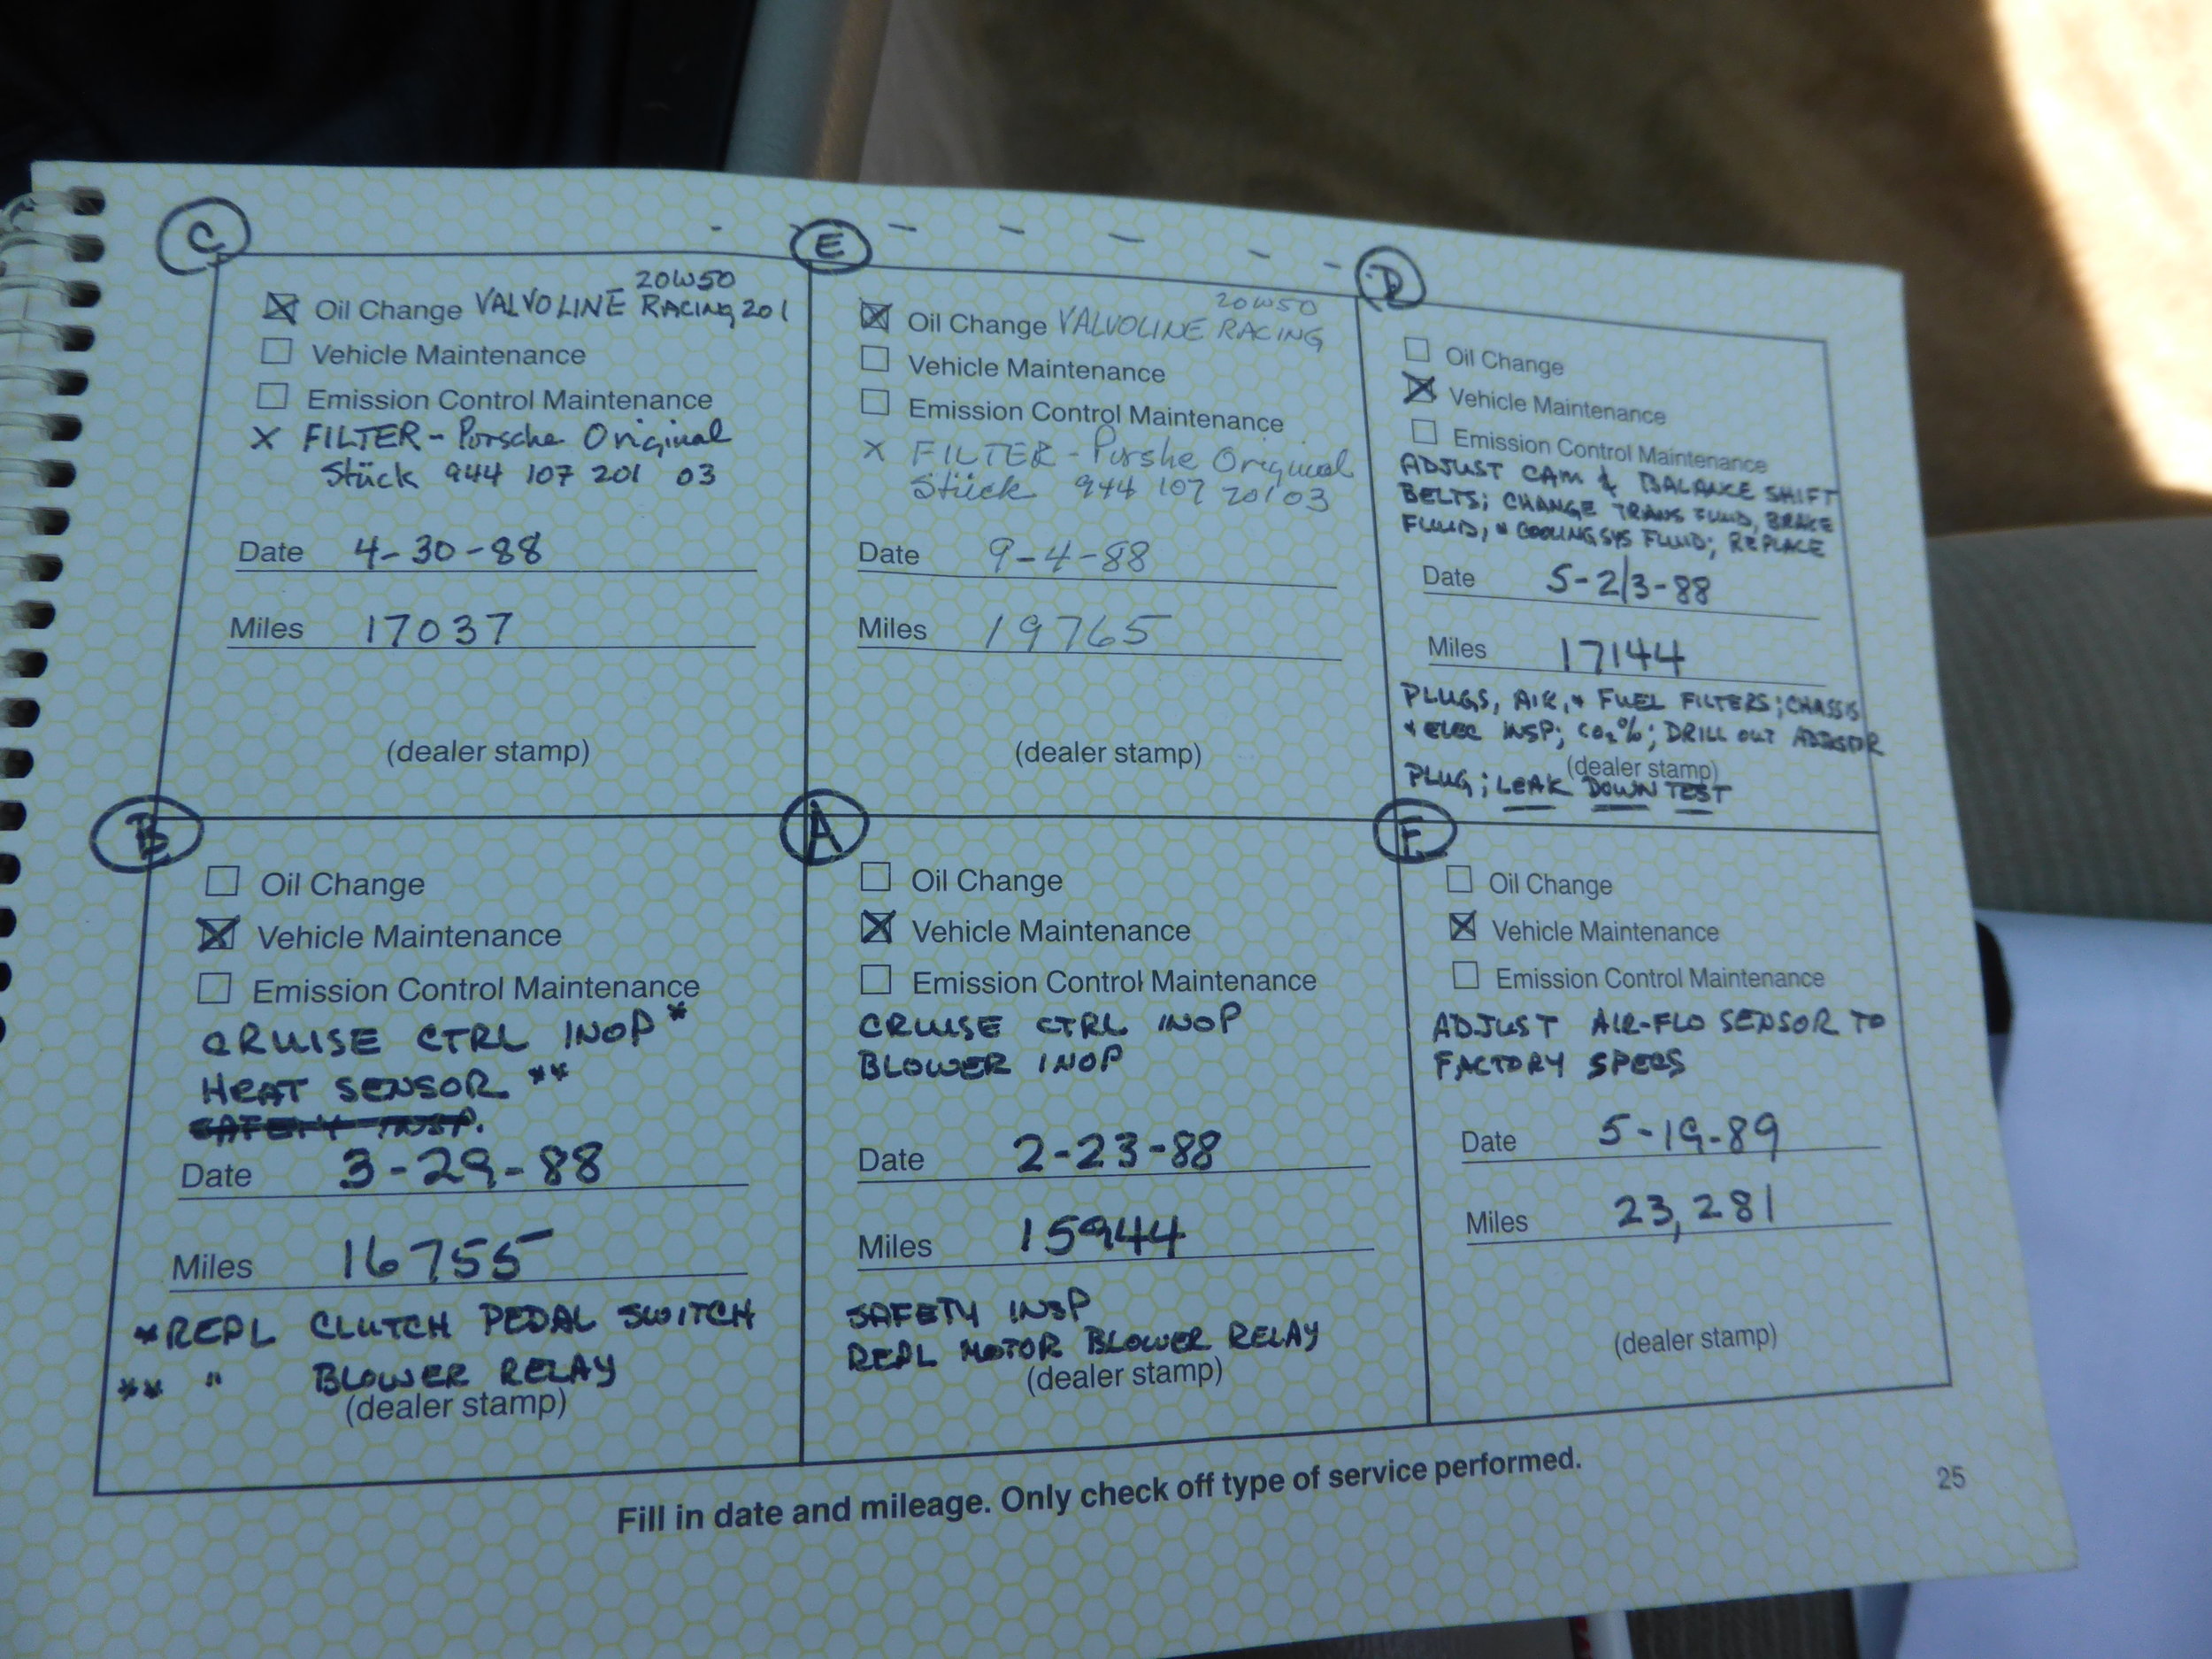 C
20W50
☒ Oil Change VALVOLINE RACING 201
☐ Vehicle Maintenance
☐ Emission Control Maintenance
X FILTER - Porsche Original
Stück 944 107 201 03
Date 4-30-88
Miles 17037
(dealer stamp)
E
20W50
☒ Oil Change VALVOLINE RACING
☐ Vehicle Maintenance
☐ Emission Control Maintenance
X FILTER - Porshe Original
Stück 944 107 201 03
Date 9-4-88
Miles 19765
(dealer stamp)
D
☐ Oil Change
☒ Vehicle Maintenance
☐ Emission Control Maintenance
ADJUST CAM & BALANCE SHIFT
BELTS; CHANGE TRANS FLUID, BRAKE
FLUID, & COOLING SYS FLUID; REPLACE
Date 5-2/3-88
Miles 17144
PLUGS, AIR, & FUEL FILTERS; CHASSIS
& ELEC INSP; CO₂%; DRILL OUT ADJUSTOR
(dealer stamp)
PLUG; LEAK DOWN TEST
B
☐ Oil Change
☒ Vehicle Maintenance
☐ Emission Control Maintenance
CRUISE CTRL INOP *
HEAT SENSOR **
SAFETY INSP.
Date 3-29-88
Miles 16755
*REPL CLUTCH PEDAL SWITCH
** " BLOWER RELAY
(dealer stamp)
A
☐ Oil Change
☒ Vehicle Maintenance
☐ Emission Control Maintenance
CRUISE CTRL INOP
BLOWER INOP
Date 2-23-88
Miles 15944
SAFETY INSP
REPL MOTOR BLOWER RELAY
(dealer stamp)
F
☐ Oil Change
☒ Vehicle Maintenance
☐ Emission Control Maintenance
ADJUST AIR-FLO SENSOR TO
FACTORY SPECS
Date 5-19-89
Miles 23,281
(dealer stamp)
Fill in date and mileage. Only check off type of service performed.
25